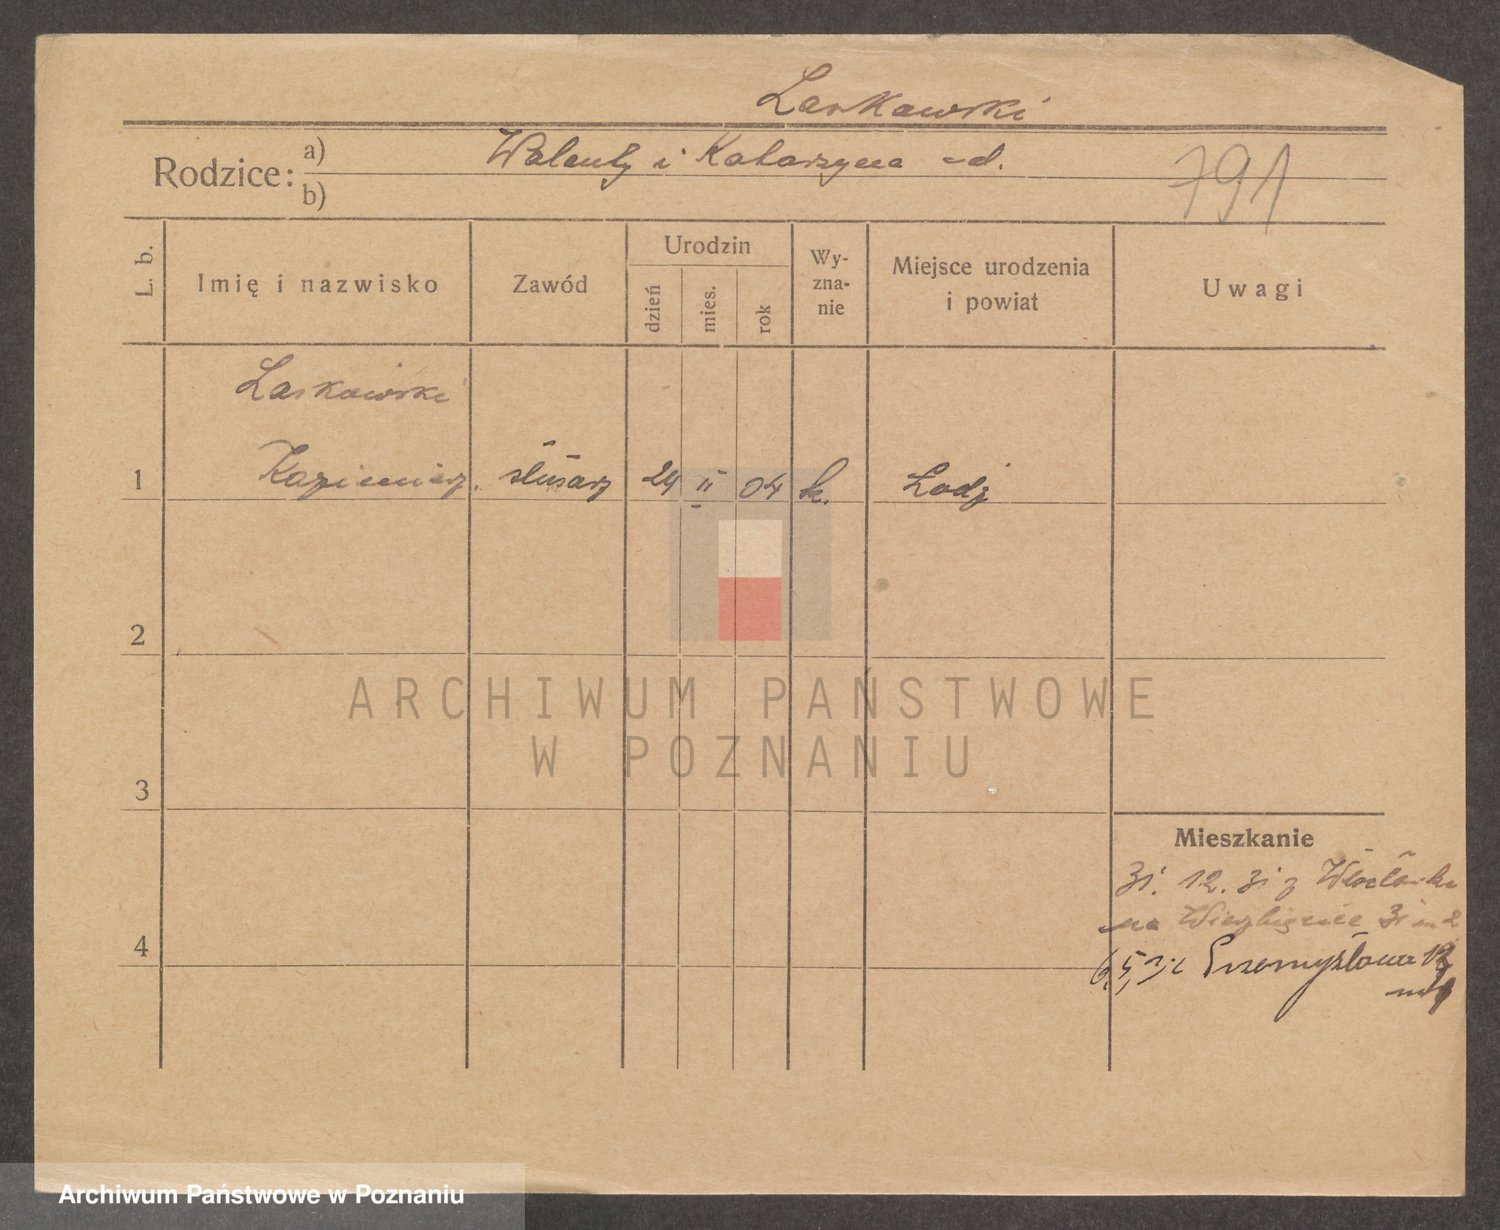 Laskowski
Rodzice: a) Walenty i Katarzyna
b)
791
L. b.
Imię i nazwisko
Zawód
Urodzin
dzień
mies.
rok
Wy-
zna-
nie
Miejsce urodzenia
i powiat
Uwagi
Laskowski
1 Kazimierz. ślusarz 24 II 04 k. Łodź
2
3
4
Mieszkanie
31. 12. 31 z Włocławka
na Wierzbięcice 31 m 2
Przemysłowa
ARCHIWUM PAŃSTWOWE
W POZNANIU
Archiwum Państwowe w Poznaniu